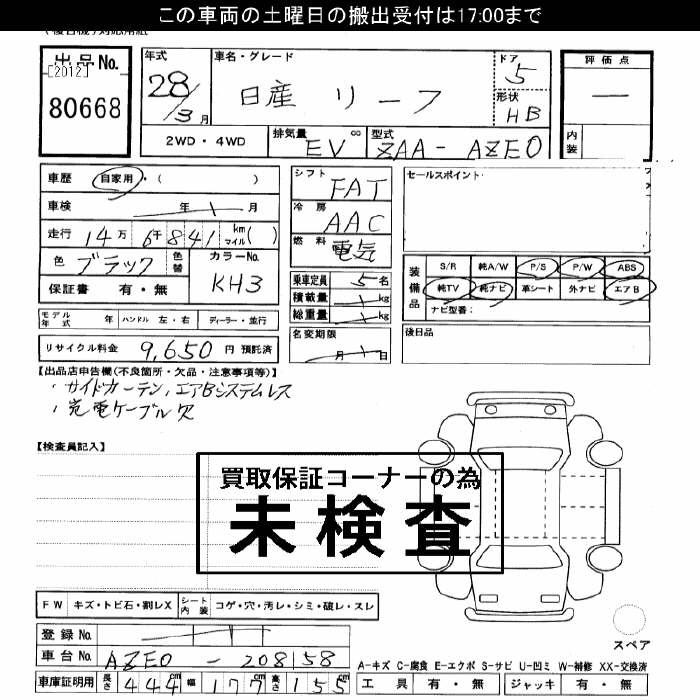 この車両の土曜日の搬出受付は17:00まで
出品No. 年式 車名・グレード ドア 評価点
[2012] 28/3月 日産 リーフ 5 一
80668 形状 HB
2WD・4WD 排気量 EV ∞ 型式 ZAA-AZE0 内装
車歴 自家用・( ) シフト FAT セールスポイント
車検 年 月 冷房 AAC
走行 14万6千841 km マイル( ) 燃料 電気
色 ブラック 色替 カラーNo. KH3 乗車定員 5名
保証書 有・無 積載量 kg
総重量 kg
装備品 S/R 純A/W P/S P/W ABS
純TV 純ナビ 革シート 外ナビ エアB
ナビ型番:
モデル年式 年 ハンドル 左・右 ディーラー・並行 名変期限 月 日 後日品
リサイクル料金 9,650 円 預託済
【出品店申告欄(不良箇所・欠品・注意事項等)】
・サイドカーテン,エアBシステムレス
・充電ケーブル欠
【検査員記入】
買取保証コーナーの為
未検査
FW キズ・トビ石・割レX シート内装 コゲ・穴・汚レ・シミ・破レ・スレ
登録No.
スペア
車台No. AZE0-208158
A-キズ C-腐食 E-エクボ S-サビ U-凹ミ W-補修 XX-交換済
車庫証明用 長さ 444cm 幅 177cm 高さ 155cm 工具 有・無 ジャッキ 有・無